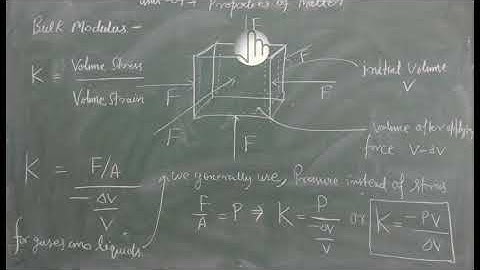 Unit-07 Properties of Matter
Bulk Modulus -
F
K = Volume Stress / Volume Strain
F
F
F
initial Volume
V
F
F
Volume after applying
force V-dv
K = F/A / -ΔV/V
we generally use, Pressure instead of stress
F/A = P ⇒ K = P / -ΔV/V or K = -PV / ΔV
for gases and liquids.